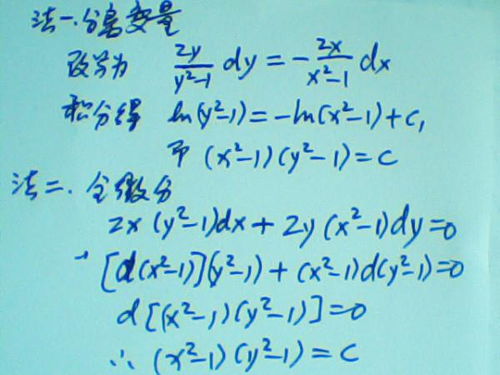 法一.分离变量
改写为 2y/(y²-1) dy = - 2x/(x²-1) dx
积分得 ln(y²-1)=-ln(x²-1)+c₁
即 (x²-1)(y²-1)=c
法二.全微分
2x(y²-1)dx+2y(x²-1)dy=0
[d(x²-1)](y²-1)+(x²-1)d(y²-1)=0
d[(x²-1)(y²-1)]=0
∴ (x²-1)(y²-1)=c